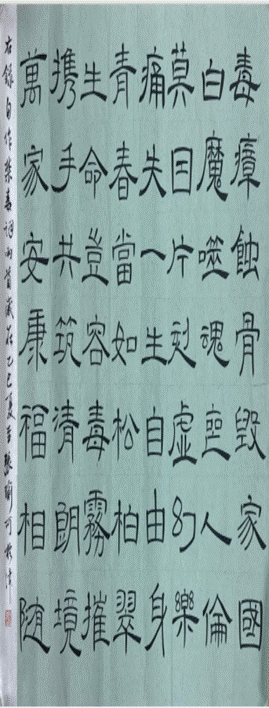 毒瘴蝕骨毀家國
白魔噬魂人倫
莫因片刻虛幻樂
痛失一生自由身
青春當如松柏翠
生命豈容毒霧摧
携手共筑清朗境
萬家安康福相随
右錄自作禁毒詞兩首歲在乙巳夏